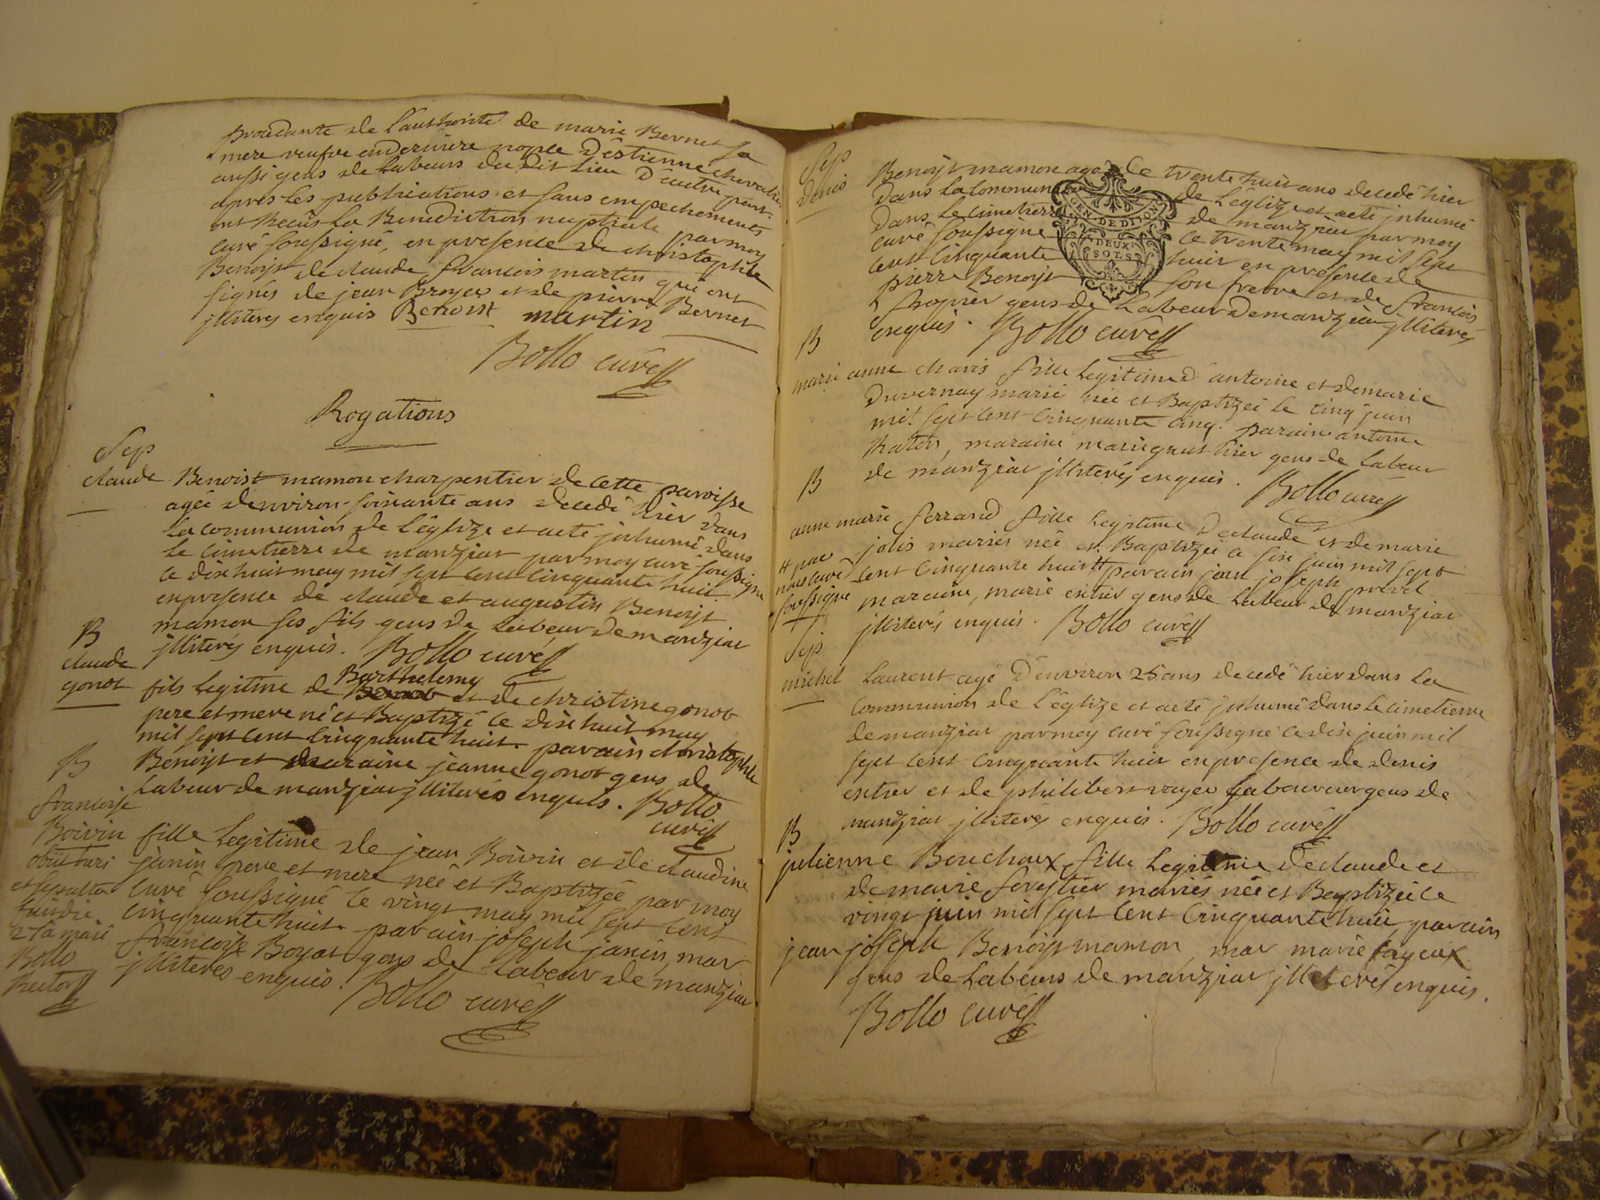 procedante de l'authorité de marie Bernet sa
mere veufve en derniere nople d'Estienne chevalier
aussi gens de labeurs du dit lieu d'autre part.
apres les publications et sans empechements
ont Recus la Benediction nuptiale par moy
curé soussigné, en presence de christophle
Benoist de claude francois martin qui ont
signés de jean Broyer et de pierre Bernet
jlliterés enquis Benoist martin
Bollo curé
Rogations
Sep
claude Benoist mamon charpentier de cette paroisse
agée denviron soixante ans decedé hier dans
la communion de l'églize et aeté jnhumé dans
le cimetierre de manziat par moy curé soussigné
ce dix huit may mil sept cent cinquante huit
en presence de claude et augustin Benoist
mamon ses fils gens de labeur de manziat
jlliterés enquis. Bollo curé
B
claude
gonot fils legitime de Barthelemy et de christine gonot
pere et mere né et Baptizé le dix huit may
mil sept cent cinquante huit parain christophle
Benoist et maraine jeanne gonot gens de
labeur de manziat jlliterés enquis. Bollo
curé
B
francoise
Boivin fille legitime de jean Boivin et de claudine
janin pere et mere neé et Baptizée par moy
curé soussigné le vingt may mil sept cent
cinquante huit parain joseph janin, mar
francoise Boyat gens de labeur de manziat
jlliterés enquis. Bollo curé
et sepulta
27a maii
Bollo
Rector
Sep
Denis Benoist mamon agé de trente huit ans decedé hier
dans la communion de l'eglize et aeté jnhumé
dans le cimetierre de manziat par moy
curé soussigné ce trente may mil sept
cent cinquante huit en presence de
pierre Benoist son frere et de francois
gens de labeur de manziat jlliterés
enquis. Bollo curé
GEN. DE DIJON
DEUX
SOLS
B
marie anne charis fille legitime d'antoine et de marie
Duvernay marié neé et Baptizeé le cinq juin
mil sept cent cinquante cinq. parain antoine
maraine marie gens de labeur
de manziat jlliterés enquis. Bollo curé
B
anne marie ferrand fille legitime de claude et de marie
jolis mariés neé et Baptizeé le six juin mil sept
cent cinquante huit # parain jean joseph
maraine, marie entier gens de labeur de manziat
jlliterés enquis. Bollo curé
# par
nous curé
soussigné
Sep
michel Laurent agé d'environ 25 ans decedé hier dans la
communion de l'églize et aeté jnhumé dans le cimetierre
de manziat par moy curé soussigné ce dix juin mil
sept cent cinquante huit en presence de denis
entier et de philibert royer laboureur gens de
manziat jlliterés enquis. Bollo curé
B
julienne Bouchoux fille legitime de claude et
de marie forestier mariés neé et Baptizeé le
vingt juin mil sept cent cinquante huit, parain
jean joseph Benoist mamon, mar marie fayeux
gens de labeurs de manziat jlliterés enquis.
Bollo curé